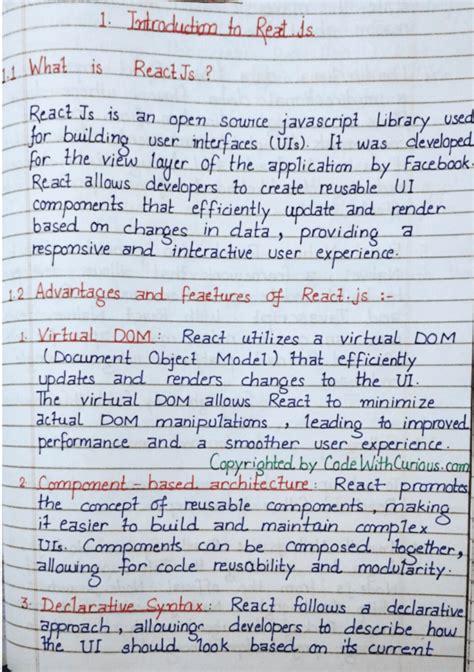 1. Introduction to React.js
1.1 What is ReactJs ?
React Js is an open source javascript Library used
for building user interfaces (UIs). It was developed
for the view layer of the application by Facebook.
React allows developers to create reusable UI
components that efficiently update and render
based on changes in data, providing a
responsive and interactive user experience.
1.2 Advantages and feactures of React.js :-
1. Virtual DOM: React utilizes a virtual DOM
(Document Object Model) that efficiently
updates and renders changes to the UI.
The virtual DOM allows React to minimize
actual DOM manipulations, leading to improved
performance and a smoother user experience.
Copyrighted by CodeWithCurious.com
2 Component-based architecture: React promotes
the concept of reusable components, making
it easier to build and maintain complex
UIs. Components can be composed together,
allowing for code reusability and modularity.
3. Declarative Syntax: React follows a declarative
approach, allowing developers to describe how
the UI should look based on its current